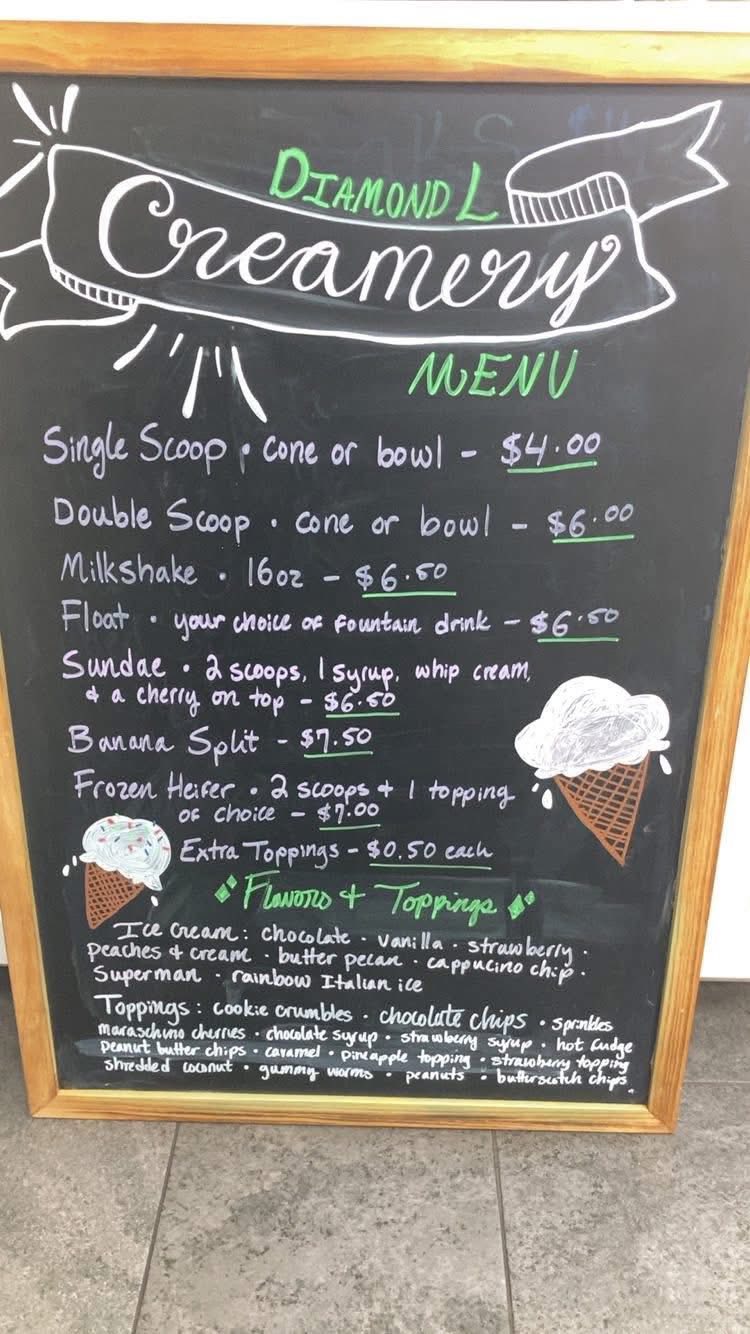 DIAMOND L
Creamery
MENU
Single Scoop • cone or bowl - $4.00
Double Scoop • cone or bowl - $6.00
Milkshake • 16oz - $6.50
Float • your choice of fountain drink - $6.50
Sundae • 2 scoops, 1 syrup, whip cream,
& a cherry on top - $6.50
Banana Split - $7.50
Frozen Heifer • 2 scoops + 1 topping
of choice - $7.00
Extra Toppings - $0.50 each
Flavors + Toppings
Ice Cream: chocolate • vanilla • strawberry •
peaches & cream • butter pecan • cappucino chip •
Superman • rainbow Italian ice
Toppings: cookie crumbles • chocolate chips • sprinkles
maraschino cherries • chocolate syrup • strawberry syrup • hot fudge
peanut butter chips • caramel • pineapple topping • strawberry topping
shredded coconut • gummy worms • peanuts • butterscotch chips